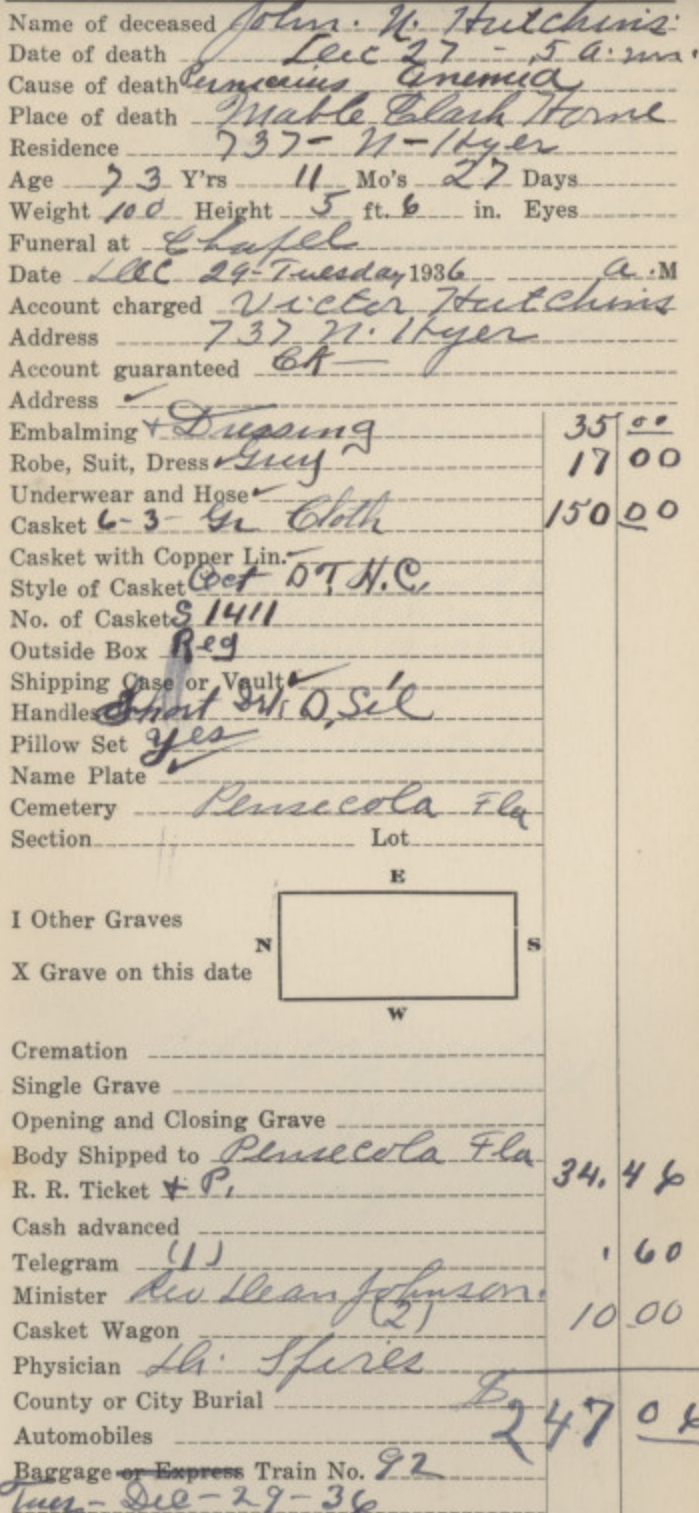 Name of deceased John. N. Hutchins
Date of death Dec 27 - 5 a.m.
Cause of death Pernicius anemia
Place of death Mable Clark Home
Residence 737- N- Hyer
Age 73 Y'rs 11 Mo's 27 Days
Weight 100 Height 5 ft. 6 in. Eyes
Funeral at Chapel
Date Dec 29-Tuesday 1936 a.M
Account charged Victor Hutchins
Address 737 N. Hyer
Account guaranteed
Address ✓
Embalming + Dressing 35 00
Robe, Suit, Dress ✓ Grey 17 00
Underwear and Hose ✓
Casket 6-3- Gr Cloth 150 00
Casket with Copper Lin.
Style of Casket Oct DT H.C.
No. of Casket S 1411
Outside Box Reg
Shipping Case or Vault ✓
Handles Short D, Sil
Pillow Set Yes
Name Plate ✓
Cemetery Pensecola Fla
Section Lot
E
I Other Graves
N S
X Grave on this date
W
Cremation
Single Grave
Opening and Closing Grave
Body Shipped to Pensecola Fla
R. R. Ticket + P. 34.46
Cash advanced
Telegram (1) .60
Minister Rev Dean Johnson.
Casket Wagon (2) 10.00
Physician Dr. Spires
County or City Burial
Automobiles $247 06
Baggage or Express Train No. 92
Tues - Dec - 29 - 36